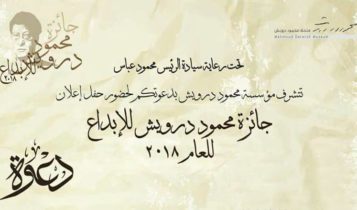 متحف محمود درويش
Mahmoud Darwish Museum
جائزة
محمود
درويش
للإبداع
٢٠١٨
تحت رعاية سيادة الرئيس محمود عباس
تتشرف مؤسسة محمود درويش بدعوتكم لحضور حفل إعلان
جائزة محمود درويش للإبداع
للعام ٢٠١٨
دعوة